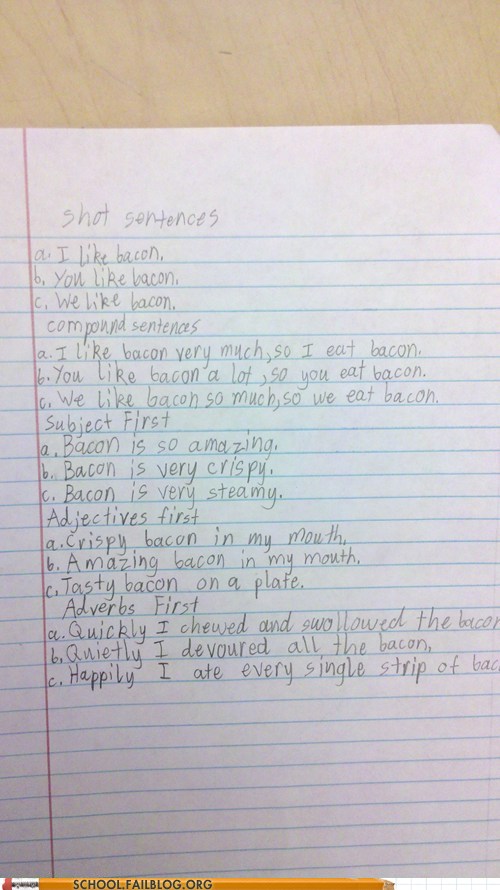 Shot sentences
a. I like bacon.
b. You like bacon.
c. We like bacon.
compound sentences
a. I like bacon very much, so I eat bacon.
b. You like bacon a lot, so you eat bacon.
c. We like bacon so much, so we eat bacon.
Subject First
a. Bacon is so amazing.
b. Bacon is very crispy.
c. Bacon is very steamy.
Adjectives first
a. Crispy bacon in my mouth.
b. Amazing bacon in my mouth.
c. Tasty bacon on a plate.
Adverbs First
a. Quickly I chewed and swollowed the bacon
b. Quietly I devoured all the bacon,
c. Happily I ate every single strip of bac
SCHOOL.FAILBLOG.ORG